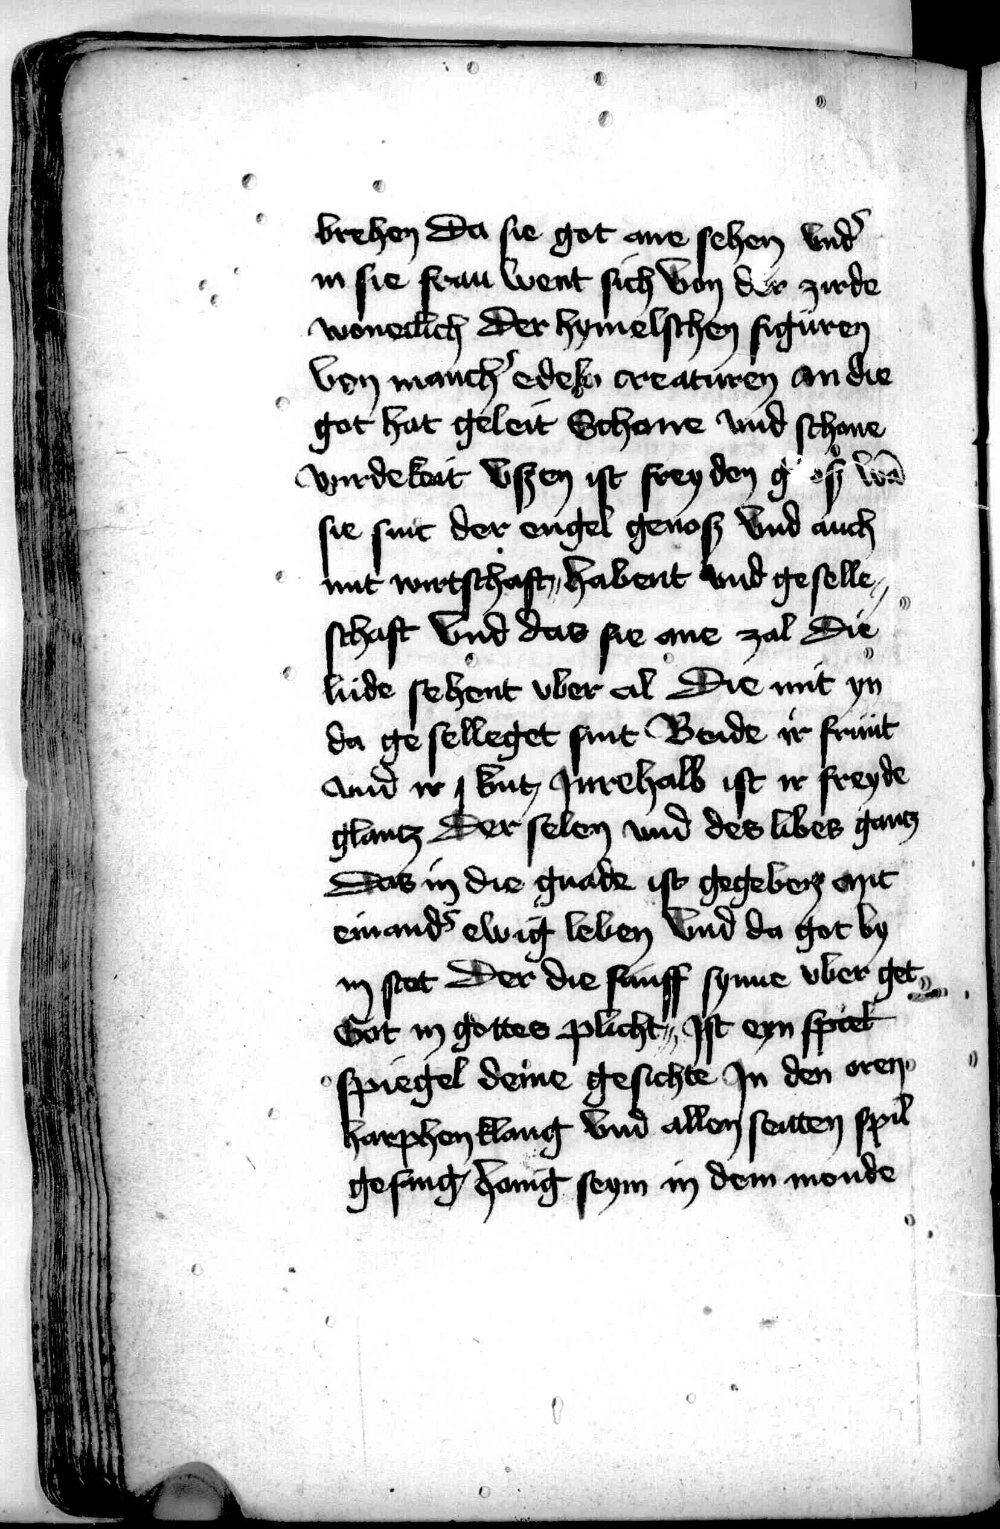 brehen Da sie got ane sehen vnd'
in sie frau went sich von der zirde
woneclich Der hymelschen figuren
von manch' edeln creaturen an die
got hat geleit Schone vnd schone
wirdekeit vßen ist freyden groß wā
sie sint der engel genoß vnd auch
mit wirtschaft habent vnd geselle
schaft vnd das sie ane zal Die
lude sehent vber al Die mit yn
da geselleget sint Beide ir frunt
vnd ir kint Inrehalb ist ir freyde
glantz Der selen vnd des libes gantz
Das in die gnade ist gegeben mit
einand' ewig leben vnd da got by
in stet Der die funff synne vber get
Got in gottes plicht Ist eyn spiel
spiegel deme gesichte In den oren
harphen klang vnd allen seitten spil
gesang honig seym in dem monde